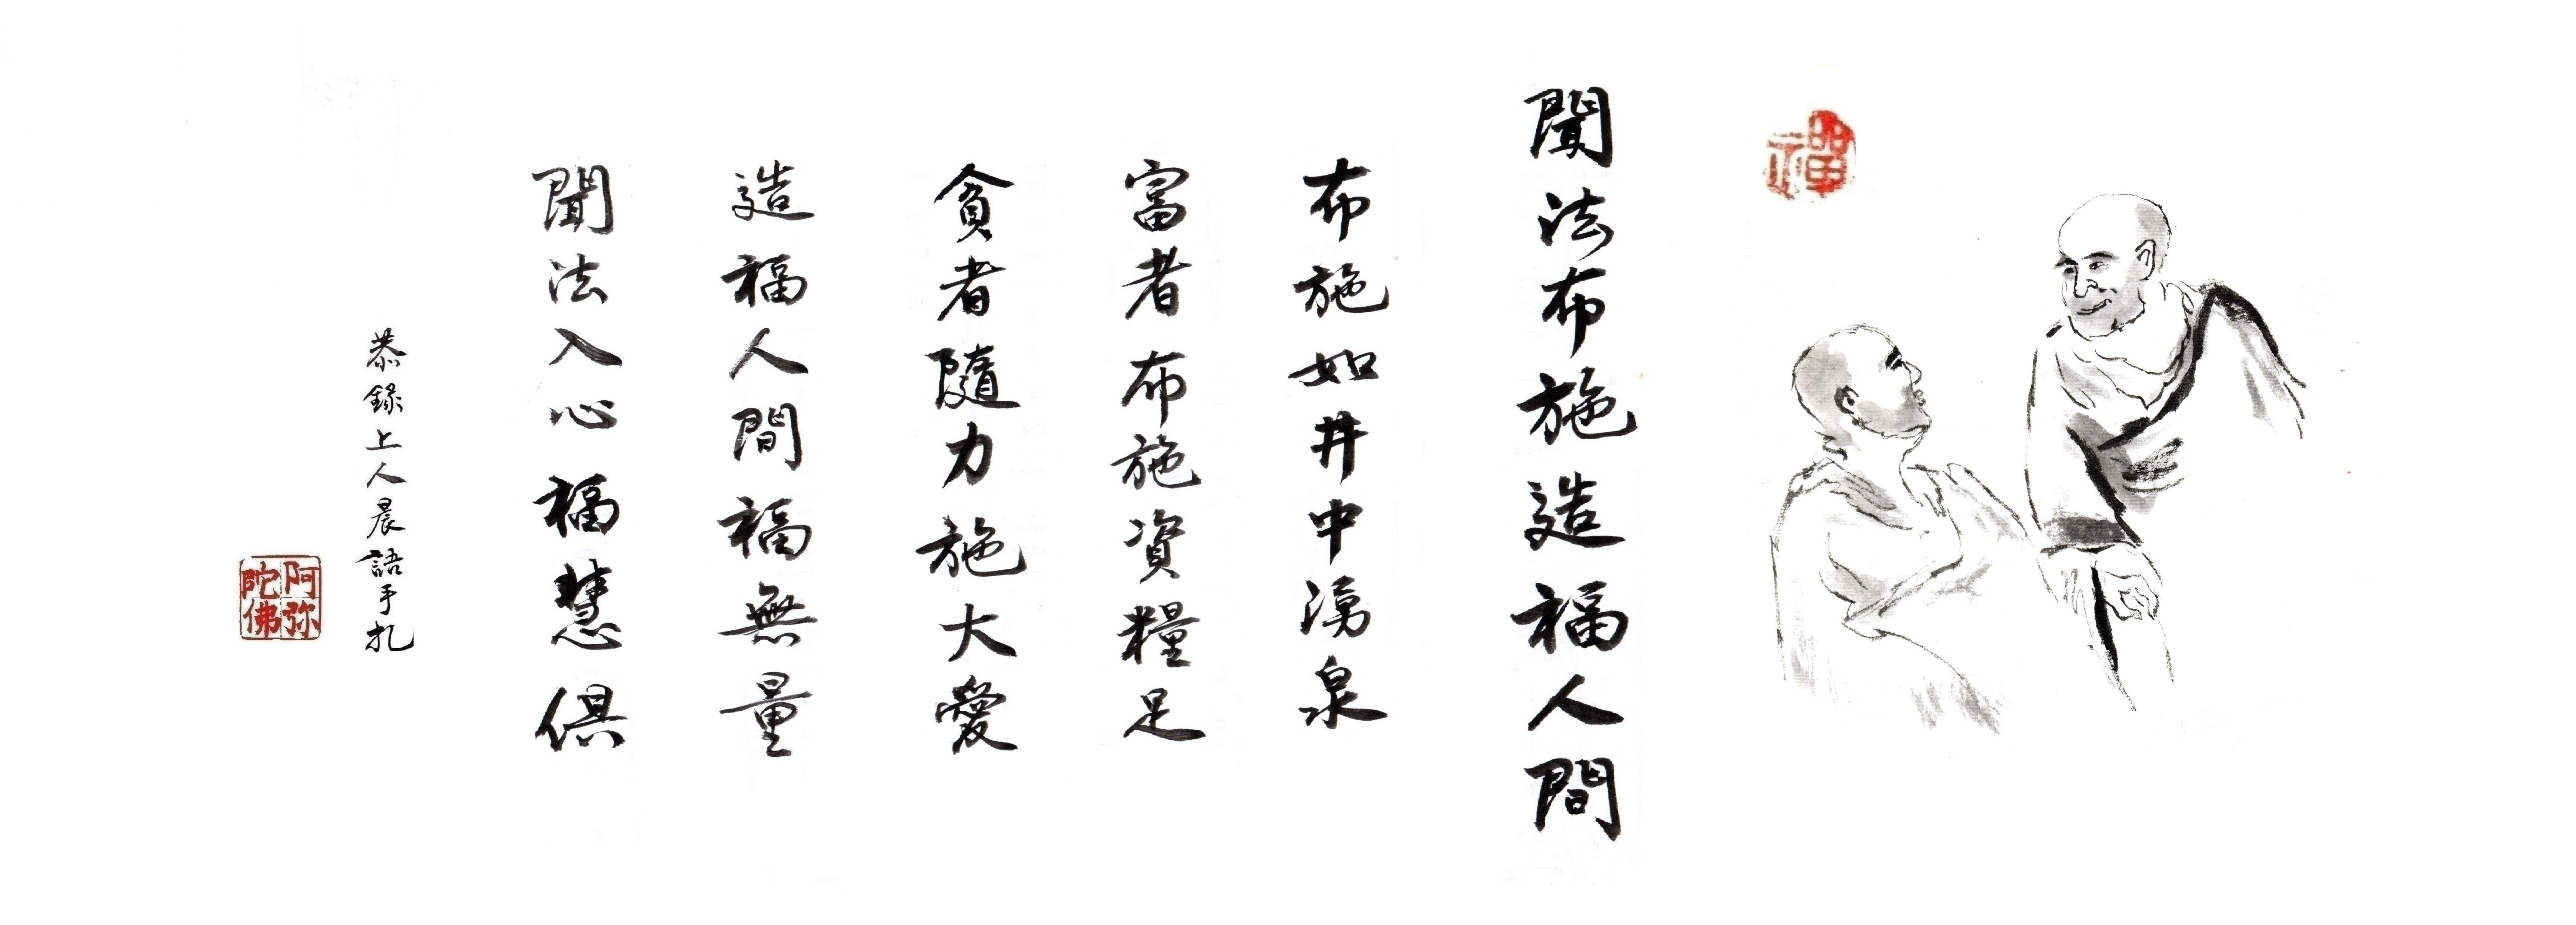 禪
聞法布施造福人間
布施如井中湧泉
富者布施資糧足
貪者隨力施大愛
造福人間福無量
聞法入心福慧俱
恭錄上人晨語手札
阿弥陀佛